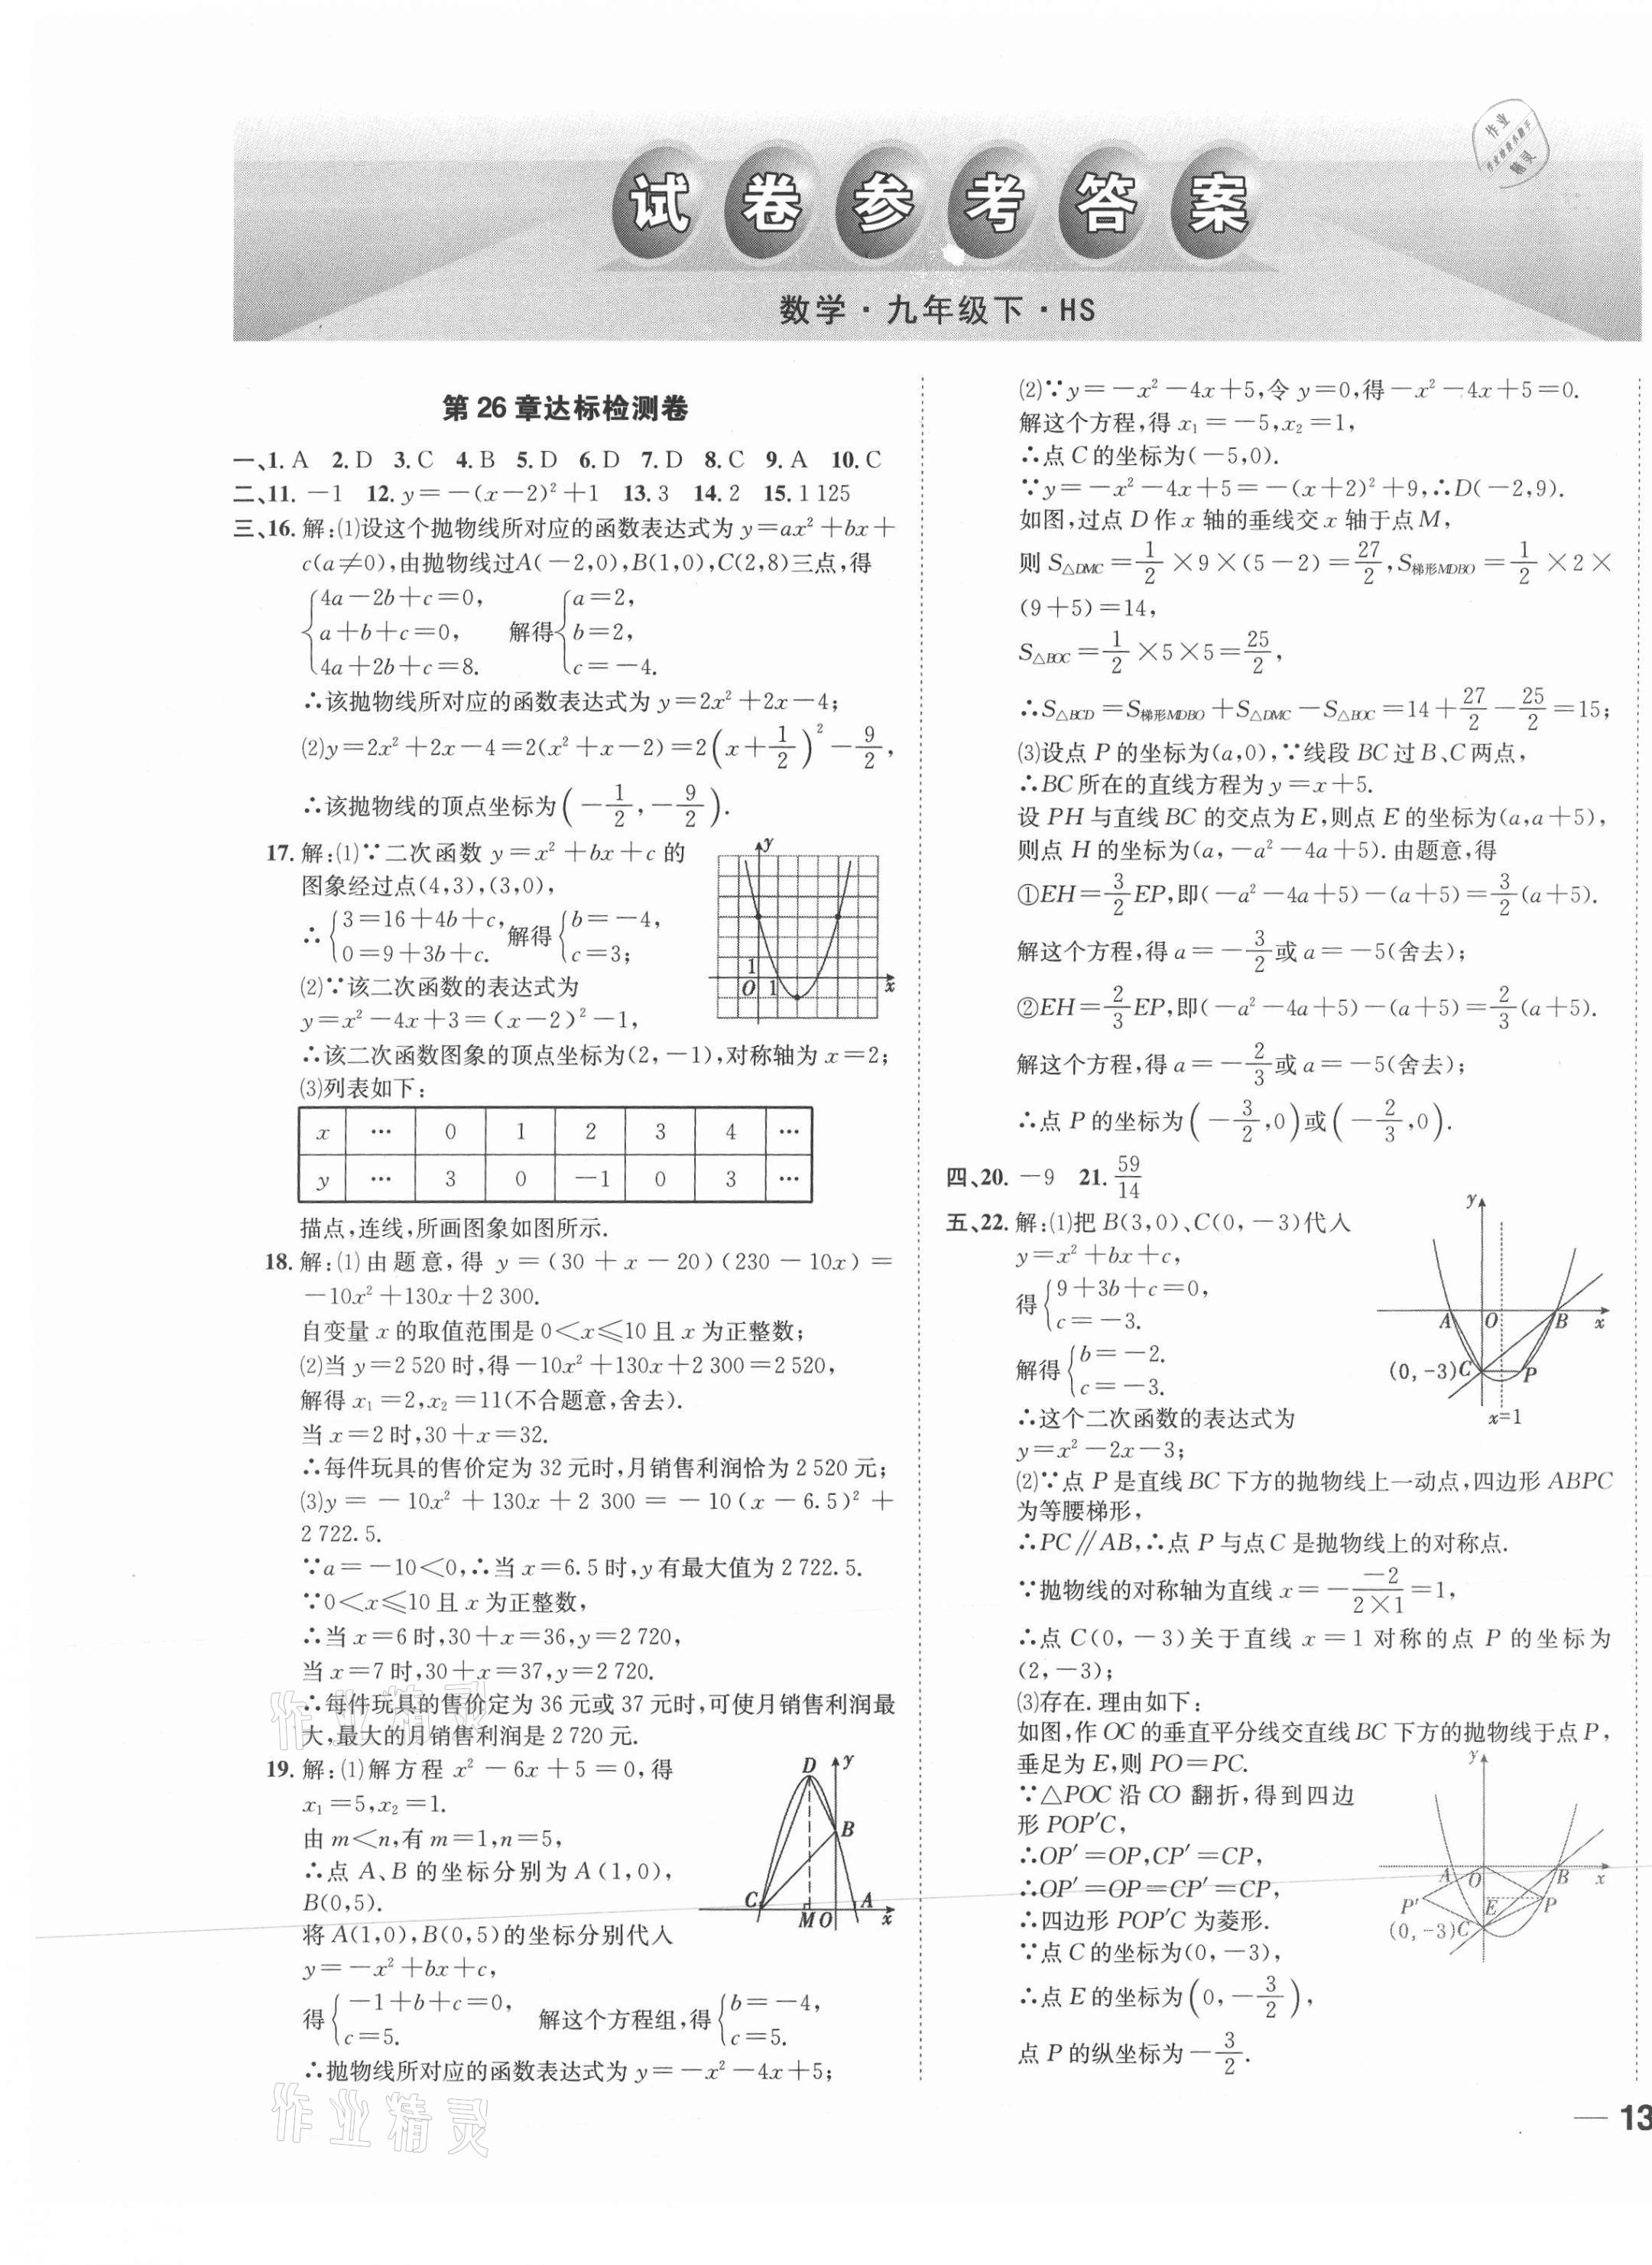 试卷参考答案
数学·九年级下·HS
第26章达标检测卷
一、1. A 2. D 3. C 4. B 5. D 6. D 7. D 8. C 9. A 10. C
二、11. －1 12. y＝－(x－2)²＋1 13. 3 14. 2 15. 1 125
三、16. 解:(1)设这个抛物线所对应的函数表达式为 y＝ax²＋bx＋
c(a≠0),由抛物线过A(－2,0),B(1,0),C(2,8)三点,得
{4a－2b＋c＝0, a＋b＋c＝0, 4a＋2b＋c＝8. 解得{a＝2, b＝2, c＝－4.
∴该抛物线所对应的函数表达式为 y＝2x²＋2x－4;
(2)y＝2x²＋2x－4＝2(x²＋x－2)＝2(x＋1/2)²－9/2,
∴该抛物线的顶点坐标为(－1/2,－9/2).
17. 解:(1)∵二次函数 y＝x²＋bx＋c 的
图象经过点(4,3),(3,0),
∴{3＝16＋4b＋c, 0＝9＋3b＋c. 解得{b＝－4, c＝3;
(2)∵该二次函数的表达式为
y＝x²－4x＋3＝(x－2)²－1,
y
1
O 1 x
∴该二次函数图象的顶点坐标为(2,－1),对称轴为 x＝2;
(3)列表如下:
x … 0 1 2 3 4 …
y … 3 0 －1 0 3 …
描点,连线,所画图象如图所示.
18. 解:(1)由题意,得 y＝(30＋x－20)(230－10x)＝
－10x²＋130x＋2 300.
自变量 x 的取值范围是 0＜x≤10 且 x 为正整数;
(2)当 y＝2 520 时,得－10x²＋130x＋2 300＝2 520,
解得 x₁＝2,x₂＝11(不合题意,舍去).
当 x＝2 时,30＋x＝32.
∴每件玩具的售价定为 32 元时,月销售利润恰为 2 520 元;
(3)y＝－10x²＋130x＋2 300＝－10(x－6.5)²＋
2 722.5.
∵a＝－10＜0,∴当 x＝6.5 时,y 有最大值为 2 722.5.
∵0＜x≤10 且 x 为正整数,
∴当 x＝6 时,30＋x＝36,y＝2 720,
当 x＝7 时,30＋x＝37,y＝2 720.
∴每件玩具的售价定为 36 元或 37 元时,可使月销售利润最
大,最大的月销售利润是 2 720 元.
19. 解:(1)解方程 x²－6x＋5＝0,得
x₁＝5,x₂＝1.
由 m＜n,有 m＝1,n＝5,
∴点 A、B 的坐标分别为 A(1,0),
B(0,5).
将 A(1,0),B(0,5)的坐标分别代入
y＝－x²＋bx＋c,
D y
B
C A
M O x
得{－1＋b＋c＝0, c＝5. 解这个方程组,得{b＝－4, c＝5.
∴抛物线所对应的函数表达式为 y＝－x²－4x＋5;
(2)∵y＝－x²－4x＋5,令 y＝0,得－x²－4x＋5＝0.
解这个方程,得 x₁＝－5,x₂＝1,
∴点 C 的坐标为(－5,0).
∵y＝－x²－4x＋5＝－(x＋2)²＋9,∴D(－2,9).
如图,过点 D 作 x 轴的垂线交 x 轴于点 M,
则 S△DMC＝1/2×9×(5－2)＝27/2,S梯形MDBO＝1/2×2×
(9＋5)＝14,
S△BOC＝1/2×5×5＝25/2,
∴S△BCD＝S梯形MDBO＋S△DMC－S△BOC＝14＋27/2－25/2＝15;
(3)设点 P 的坐标为(a,0),∵线段 BC 过 B、C 两点,
∴BC 所在的直线方程为 y＝x＋5.
设 PH 与直线 BC 的交点为 E,则点 E 的坐标为(a,a＋5),
则点 H 的坐标为(a,－a²－4a＋5).由题意,得
①EH＝3/2EP,即(－a²－4a＋5)－(a＋5)＝3/2(a＋5).
解这个方程,得 a＝－3/2或 a＝－5(舍去);
②EH＝2/3EP,即(－a²－4a＋5)－(a＋5)＝2/3(a＋5).
解这个方程,得 a＝－2/3或 a＝－5(舍去);
∴点 P 的坐标为(－3/2,0)或(－2/3,0).
四、20. －9 21. 59/14
五、22. 解:(1)把 B(3,0)、C(0,－3)代入
y＝x²＋bx＋c,
得{9＋3b＋c＝0, c＝－3.
解得{b＝－2. c＝－3.
∴这个二次函数的表达式为
y＝x²－2x－3;
y
A O B x
(0,－3)C P
x=1
(2)∵点 P 是直线 BC 下方的抛物线上一动点,四边形 ABPC
为等腰梯形,
∴PC∥AB,∴点 P 与点 C 是抛物线上的对称点.
∵抛物线的对称轴为直线 x＝－－2/2×1＝1,
∴点 C(0,－3)关于直线 x＝1 对称的点 P 的坐标为
(2,－3);
(3)存在.理由如下:
如图,作 OC 的垂直平分线交直线 BC 下方的抛物线于点 P,
垂足为 E,则 PO＝PC.
∵△POC 沿 CO 翻折,得到四边
形 POP′C,
∴OP′＝OP,CP′＝CP,
∴OP′＝OP＝CP′＝CP,
∴四边形 POP′C 为菱形.
∵点 C 的坐标为(0,－3),
∴点 E 的坐标为(0,－3/2),
点 P 的纵坐标为－3/2.
y
A O B x
P′ E P
(0,－3)C
作业精灵
作业精灵
作业
精灵
— 13